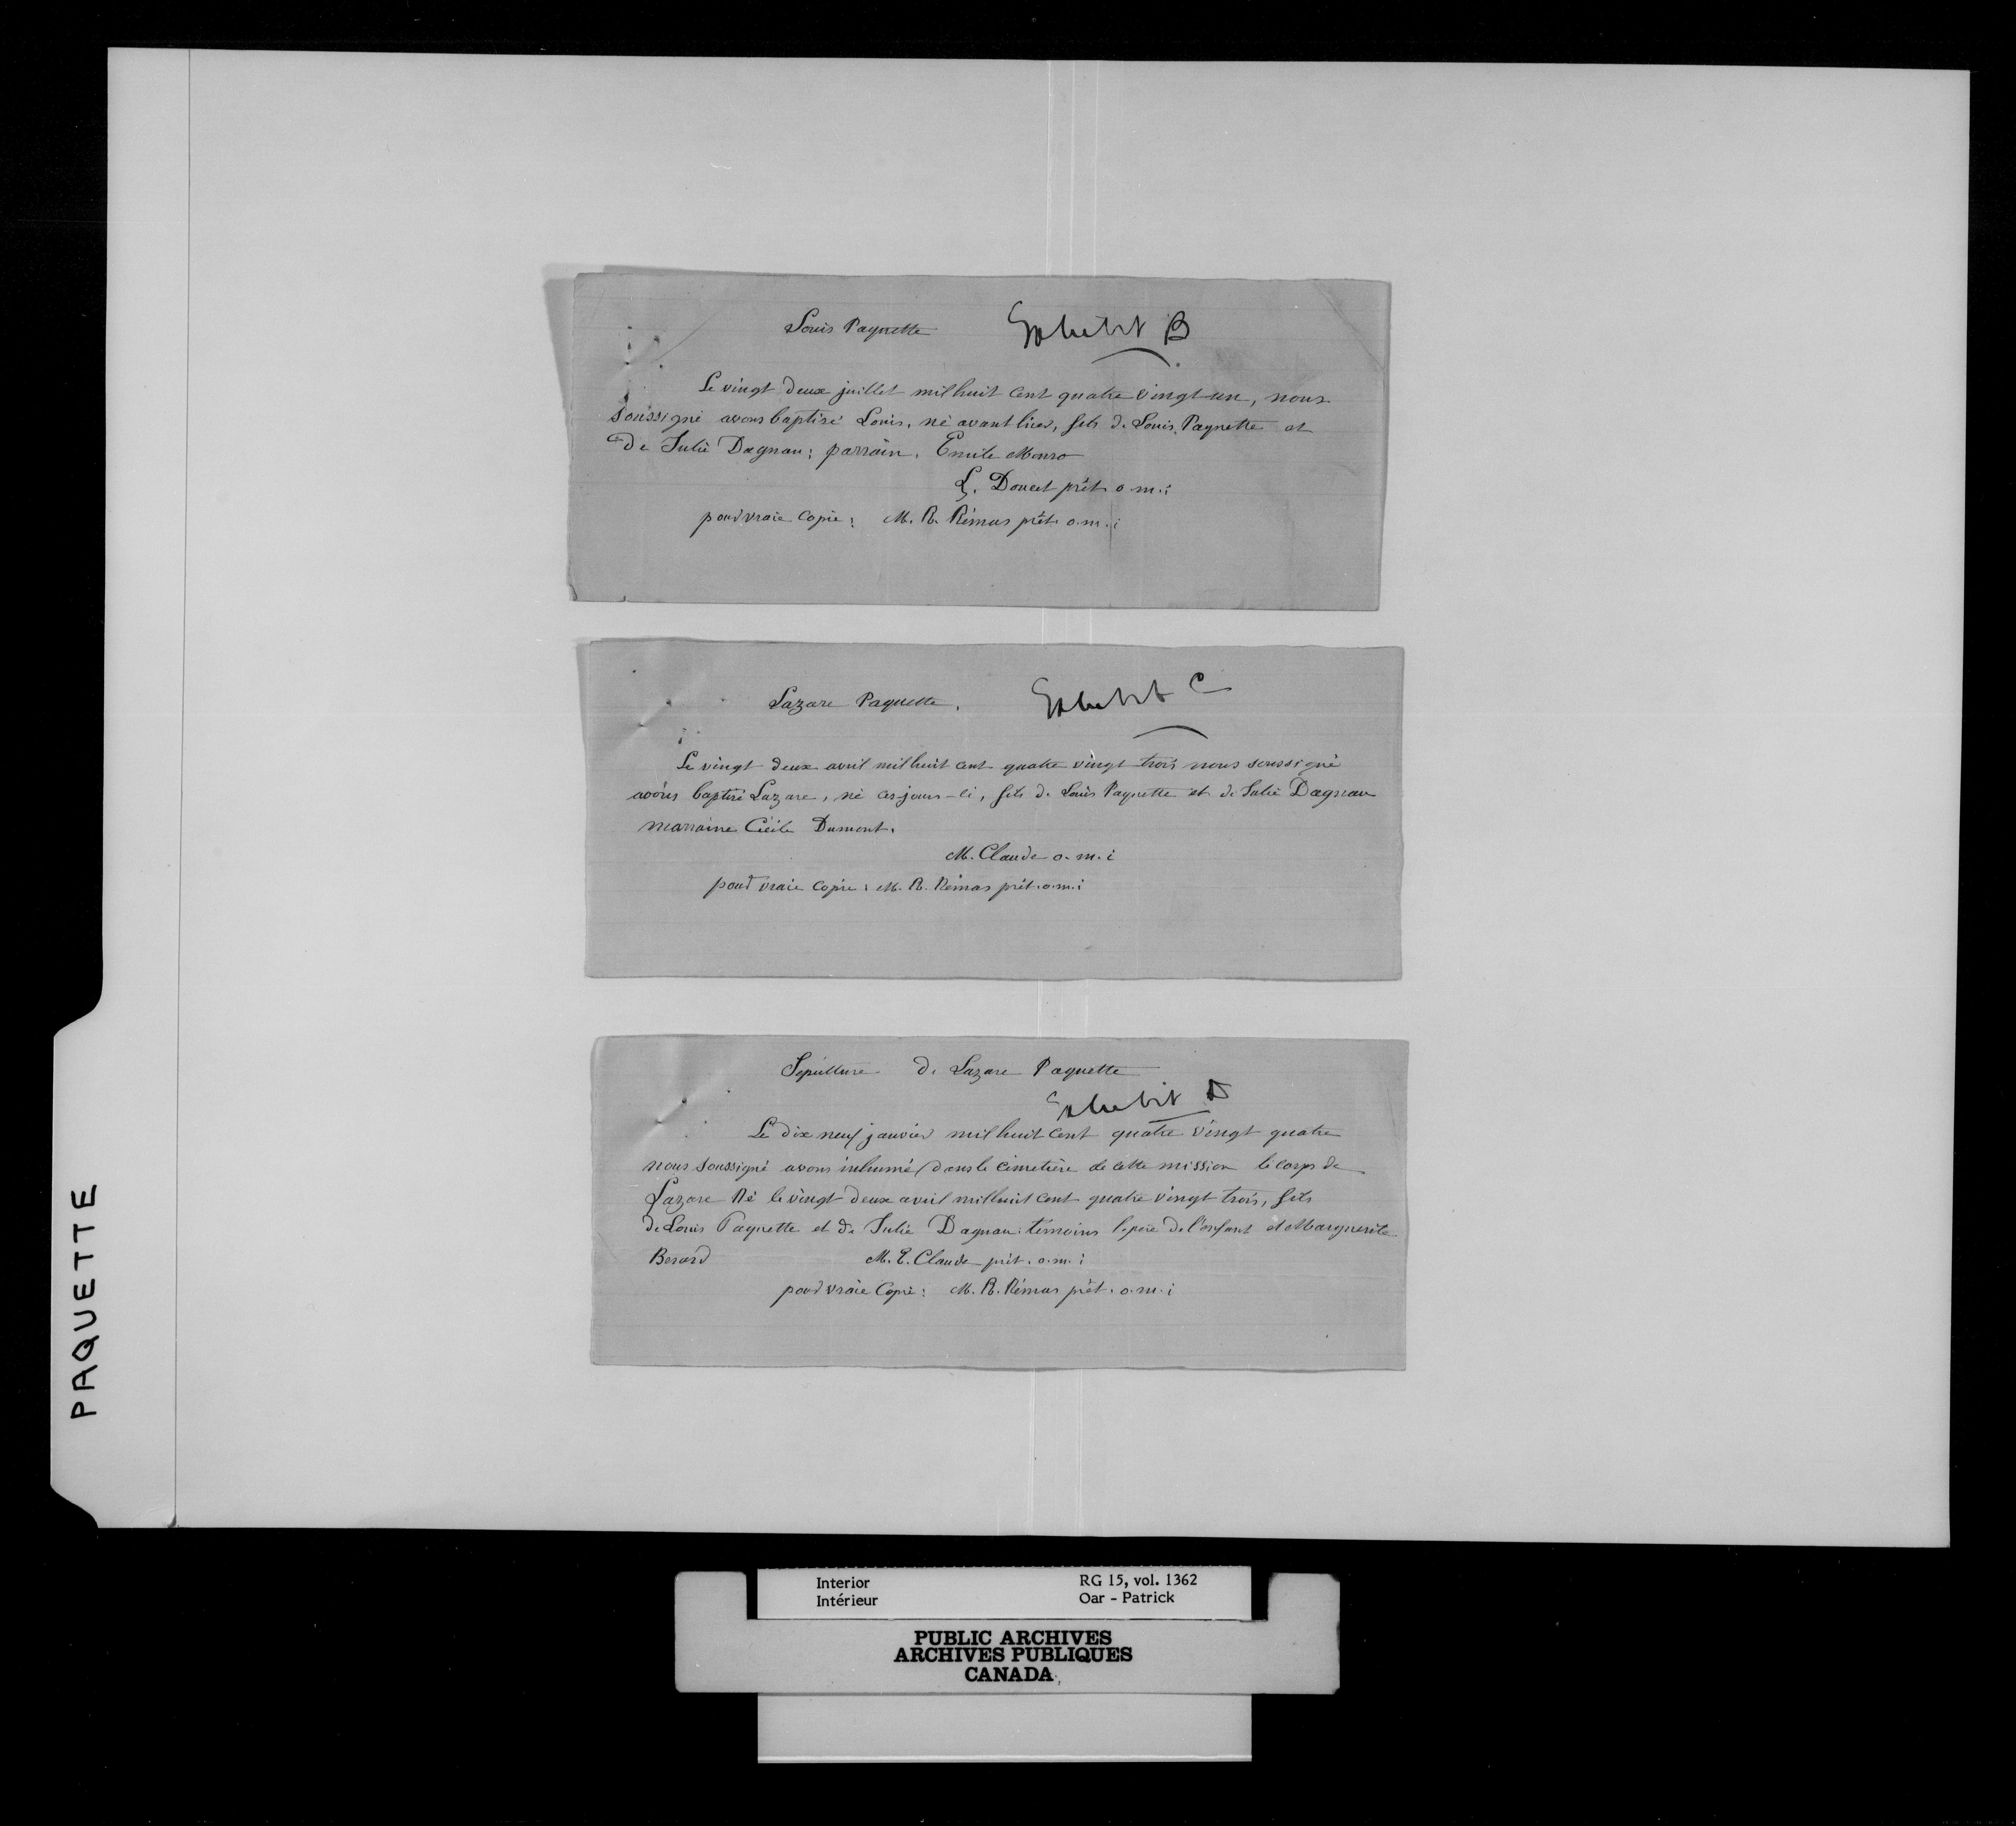 Louis Paquette Exhibit B
Le vingt deux juillet mil huit cent quatre vingt un, nous
soussigné avons baptisé Louis, né avant hier, fils de Louis Paquette et
de Julie Dagnau; parrain, Emile Monro
L. Doucet prêt. o.m.i
pour vraie copie: M. R. Rémas prêt. o.m.i
Lazare Paquette. Exhibit C
Le vingt deux avril mil huit cent quatre vingt trois nous soussigné
avons baptisé Lazare, né ces jours-ci, fils de Louis Paquette et de Julie Dagnau
marraine Cécile Dumont.
M. Claude o.m.i
pour vraie copie: M. R. Rémas prêt. o.m.i
Sépulture de Lazare Paquette
Exhibit D
Le dix neuf janvier mil huit cent quatre vingt quatre
nous soussigné avons inhumé dans le cimetière de cette mission le corps de
Lazare né le vingt deux avril mil huit cent quatre vingt trois, fils
de Louis Paquette et de Julie Dagnau: témoins le père de l'enfant et Marguerite
Berard M. E. Claude prêt. o.m.i
pour vraie copie: M. R. Rémas prêt. o.m.i
PAQUETTE
Interior RG 15, vol. 1362
Intérieur Oar - Patrick
PUBLIC ARCHIVES
ARCHIVES PUBLIQUES
CANADA